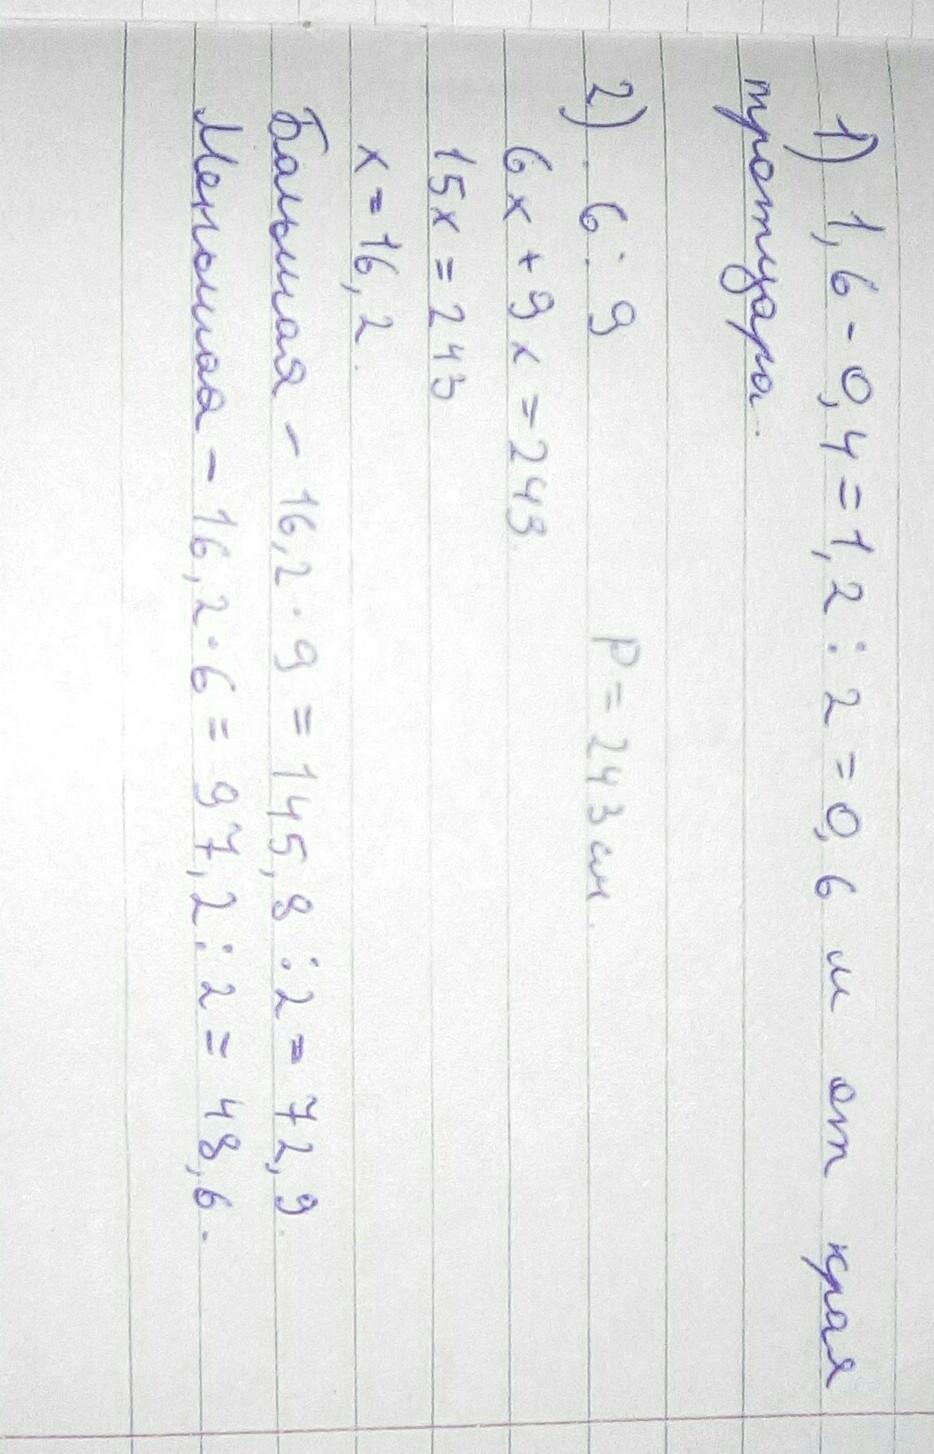 1) 1,6 - 0,4 = 1,2 : 2 = 0,6 м от края
тротуара.
2) 6 : 9 P = 243 см.
6x + 9x = 243
15x = 243
x = 16,2.
Большая - 16,2 · 9 = 145,8 : 2 = 72,9
Меньшая - 16,2 · 6 = 97,2 : 2 = 48,6.